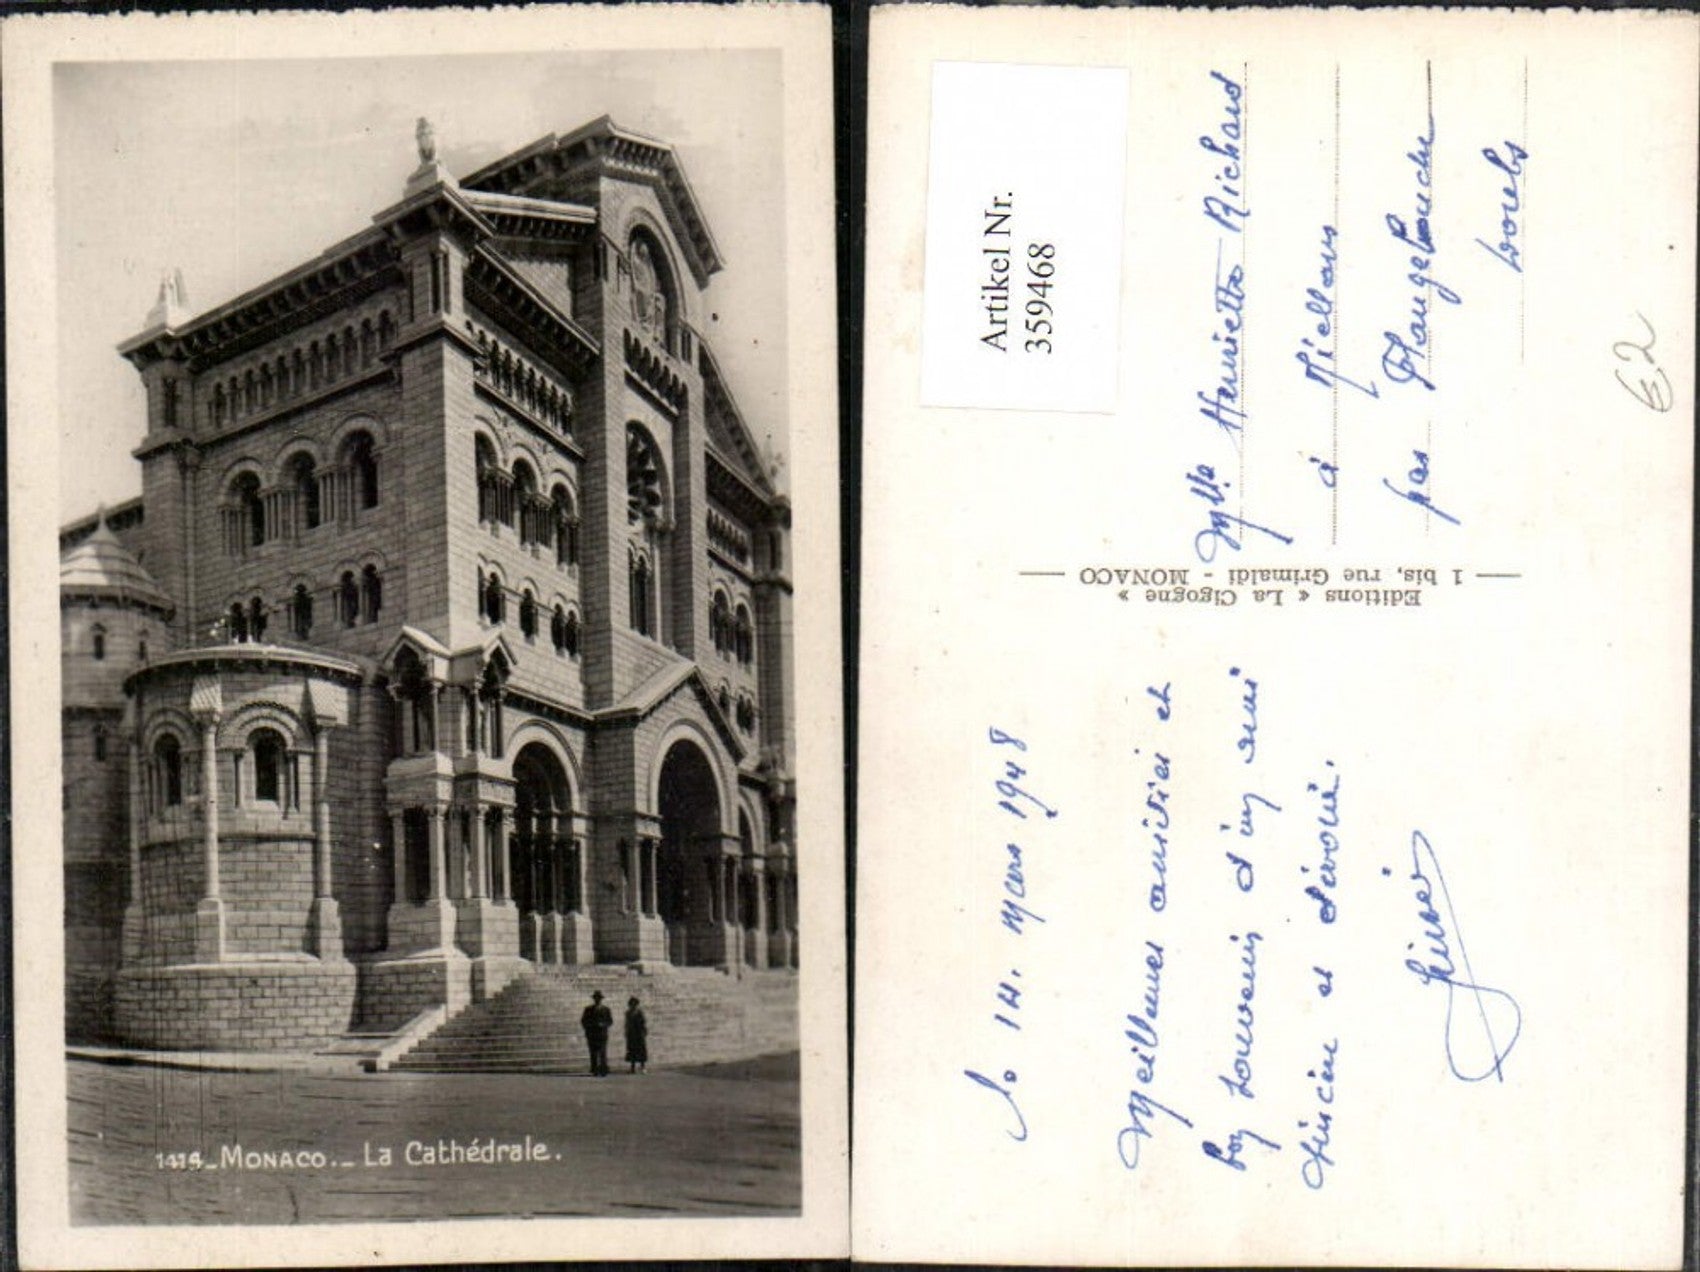 MONACO._ La Cathédrale.
Artikel Nr.
359468
Editions « La Cigogne »
1 bis, rue Grimaldi - MONACO
le 14. Mars 1948
Meilleures amitiés et
bon souvenir d'un ami
sincère et dévoué.
Mlle Henriette Richard
à
par Flangebouche
Doubs
€2